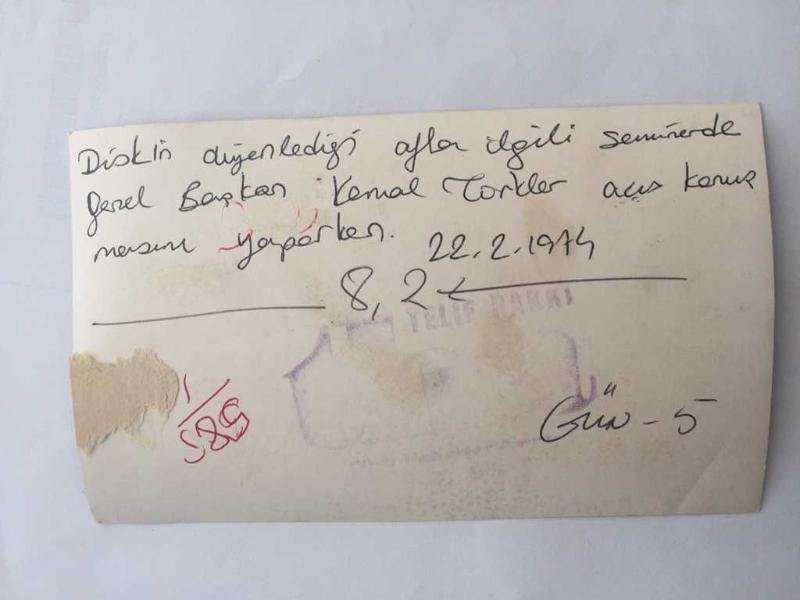 Diskin düzenlediği afla ilgili seminerde
Genel Başkan Kemal Türkler açış konuş
masını yaparken.
22.2.1974
8,2
TELİF HAKKI
1/585
Gün - 5